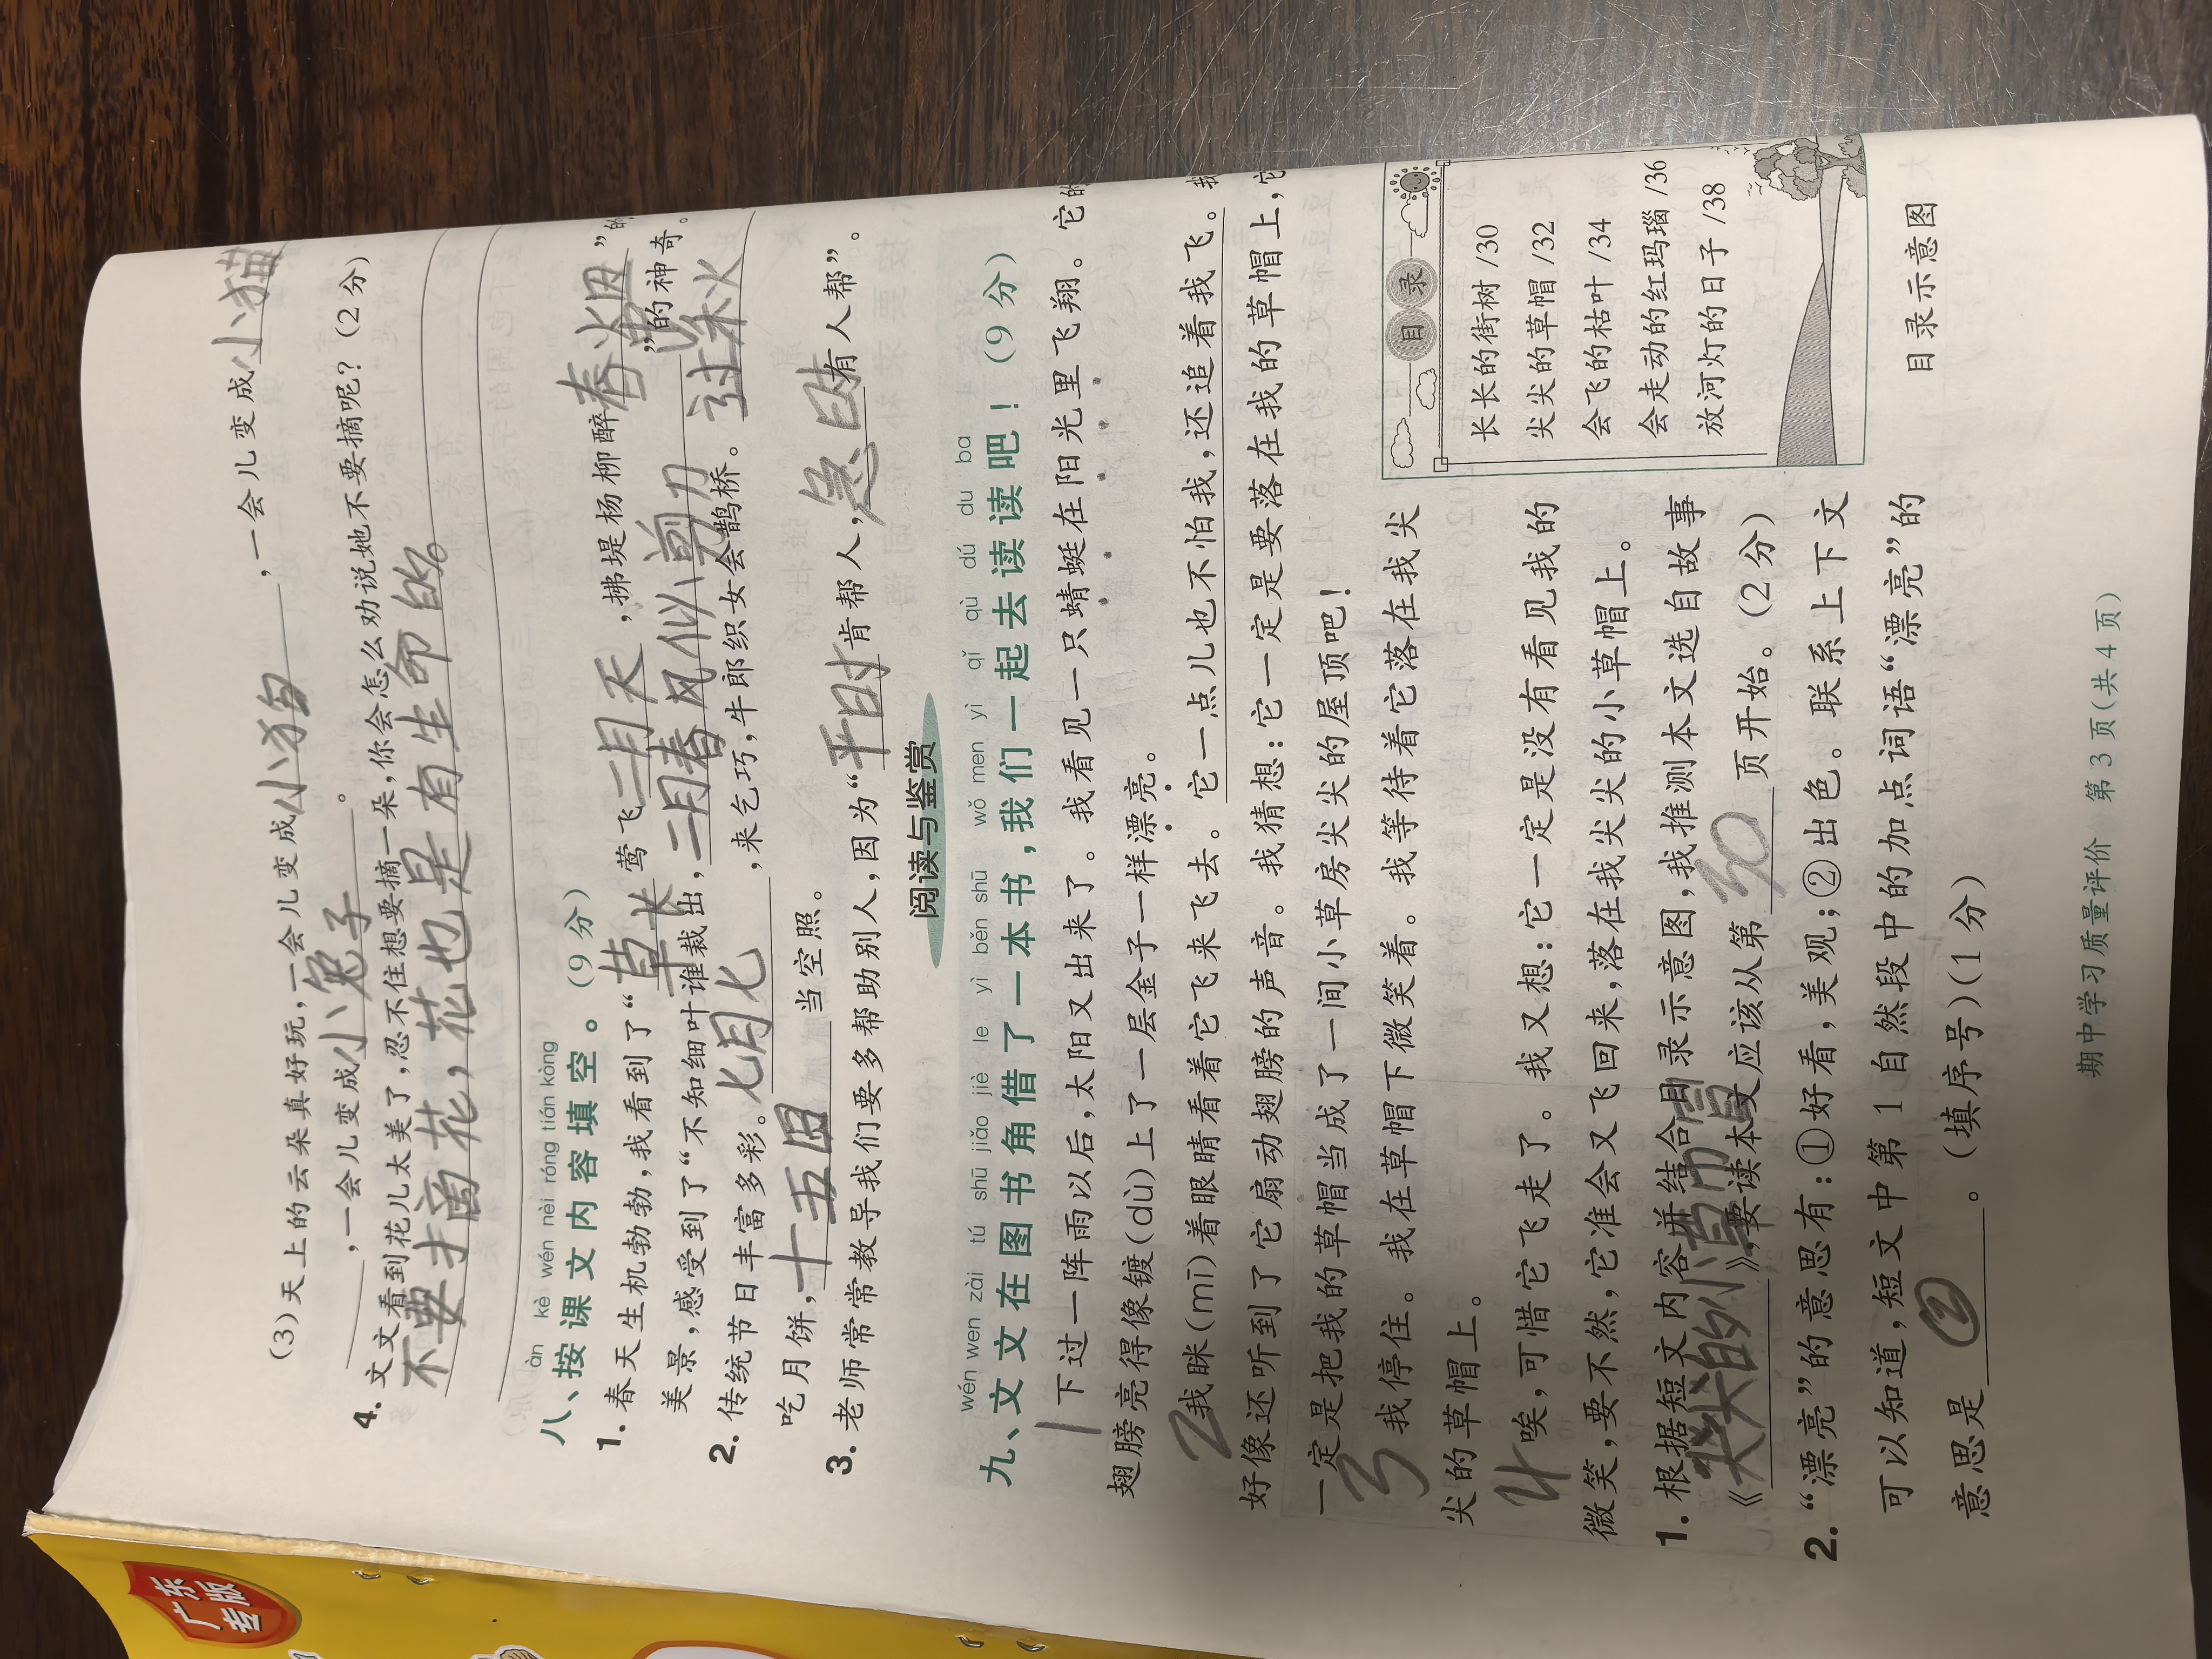 (3)天上的云朵真好玩,一会儿变成小狗,一会儿变成小猫
,一会儿变成小兔子。
4. 文文看到花儿太美了,忍不住想要摘一朵,你会怎么劝说她不要摘呢?(2分)
不要摘花,花也是有生命的。
àn kè wén nèi róng tián kòng
八、按课文内容填空。(9分)
1. 春天生机勃勃,我看到了“草长莺飞二月天,拂堤杨柳醉春烟”的
美景,感受到了“不知细叶谁裁出,二月春风似剪刀”的神奇。
2. 传统节日丰富多彩。七月七,来乞巧,牛郎织女会鹊桥。过中秋
吃月饼,十五圆当空照。
3. 老师常常教导我们要多帮助别人,因为“平时肯帮人,急时有人帮”。
阅读与鉴赏
wén wen zài tú shū jiǎo jiè le yì běn shū wǒ men yì qǐ qù dú du ba
九、文文在图书角借了一本书,我们一起去读读吧!(9分)
1下过一阵雨以后,太阳又出来了。我看见一只蜻蜓在阳光里飞翔。它的
翅膀亮得像镀(dù)上了一层金子一样漂亮。
2我眯(mī)着眼睛看着它飞来飞去。它一点儿也不怕我,还追着我飞。我
好像还听到了它扇动翅膀的声音。我猜想:它一定是要落在我的草帽上,它
一定是把我的草帽当成了一间小草房尖尖的屋顶吧!
3我停住。我在草帽下微笑着。我等待着它落在我尖
尖的草帽上。
4唉,可惜它飞走了。我又想:它一定是没有看见我的
微笑,要不然,它准会又飞回来,落在我尖尖的小草帽上。
目录
长长的街树/30
尖尖的草帽/32
会飞的枯叶/34
会走动的红玛瑙/36
放河灯的日子/38
目录示意图
1. 根据短文内容并结合目录示意图,我推测本文选自故事
《尖尖的小草帽》,要读本文应该从第30页开始。(2分)
2. “漂亮”的意思有:①好看,美观;②出色。联系上下文
可以知道,短文中第1自然段中的加点词语“漂亮”的
意思是②。(填序号)(1分)
期中学习质量评价 第3页(共4页)
广东
专版